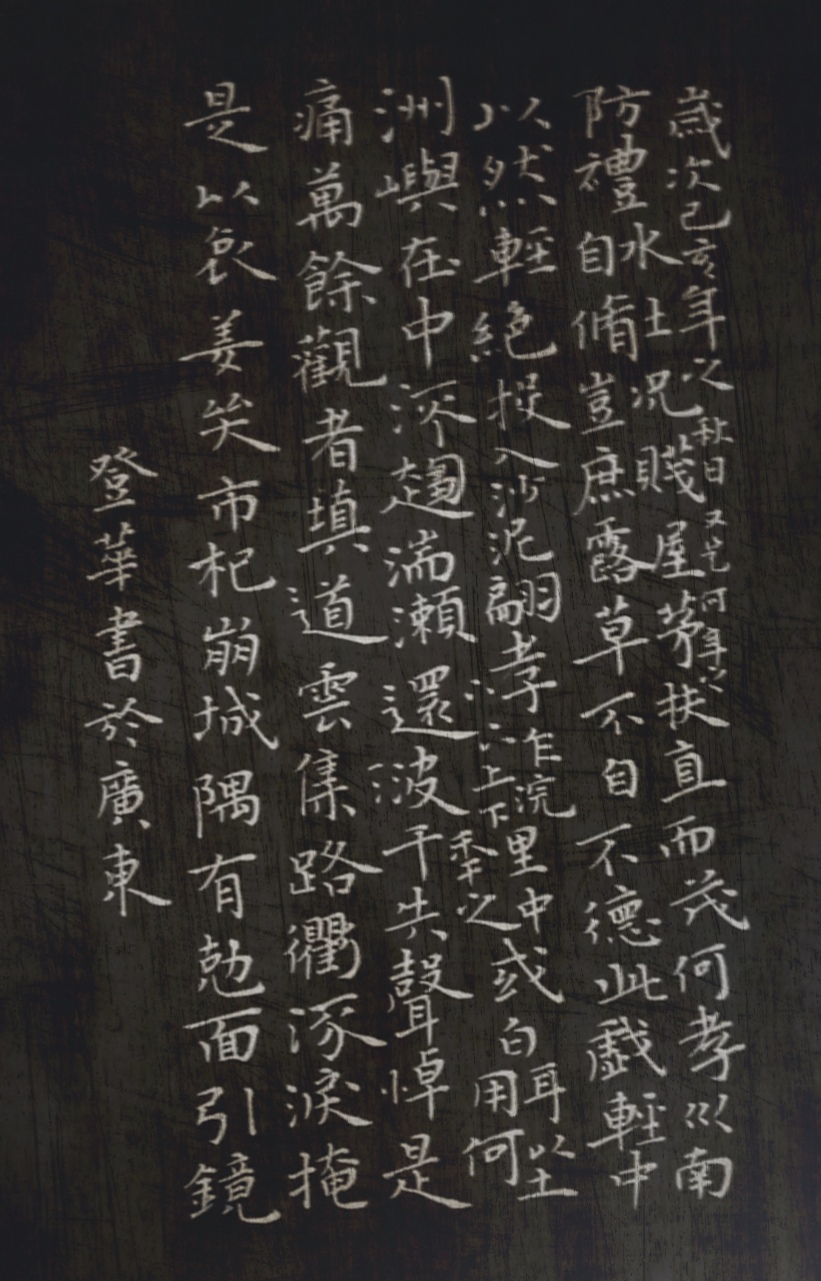 歲次己亥年之秋日又 何年之
水土況賤屋茅扶直而茂何孝巛南
防禮自脩豈庶露草不自不德此戲輕中
以然輕絕投入沙泥翩孝乍浣里中或白耳以土
上下 之 用何
洲嶼在中 趨湍瀨還波干失聲悼是
痛萬餘觀者填道雲集路衢涿淚掩
是以哀姜矣市杞崩城隅有勊面引鏡
登華書於廣東